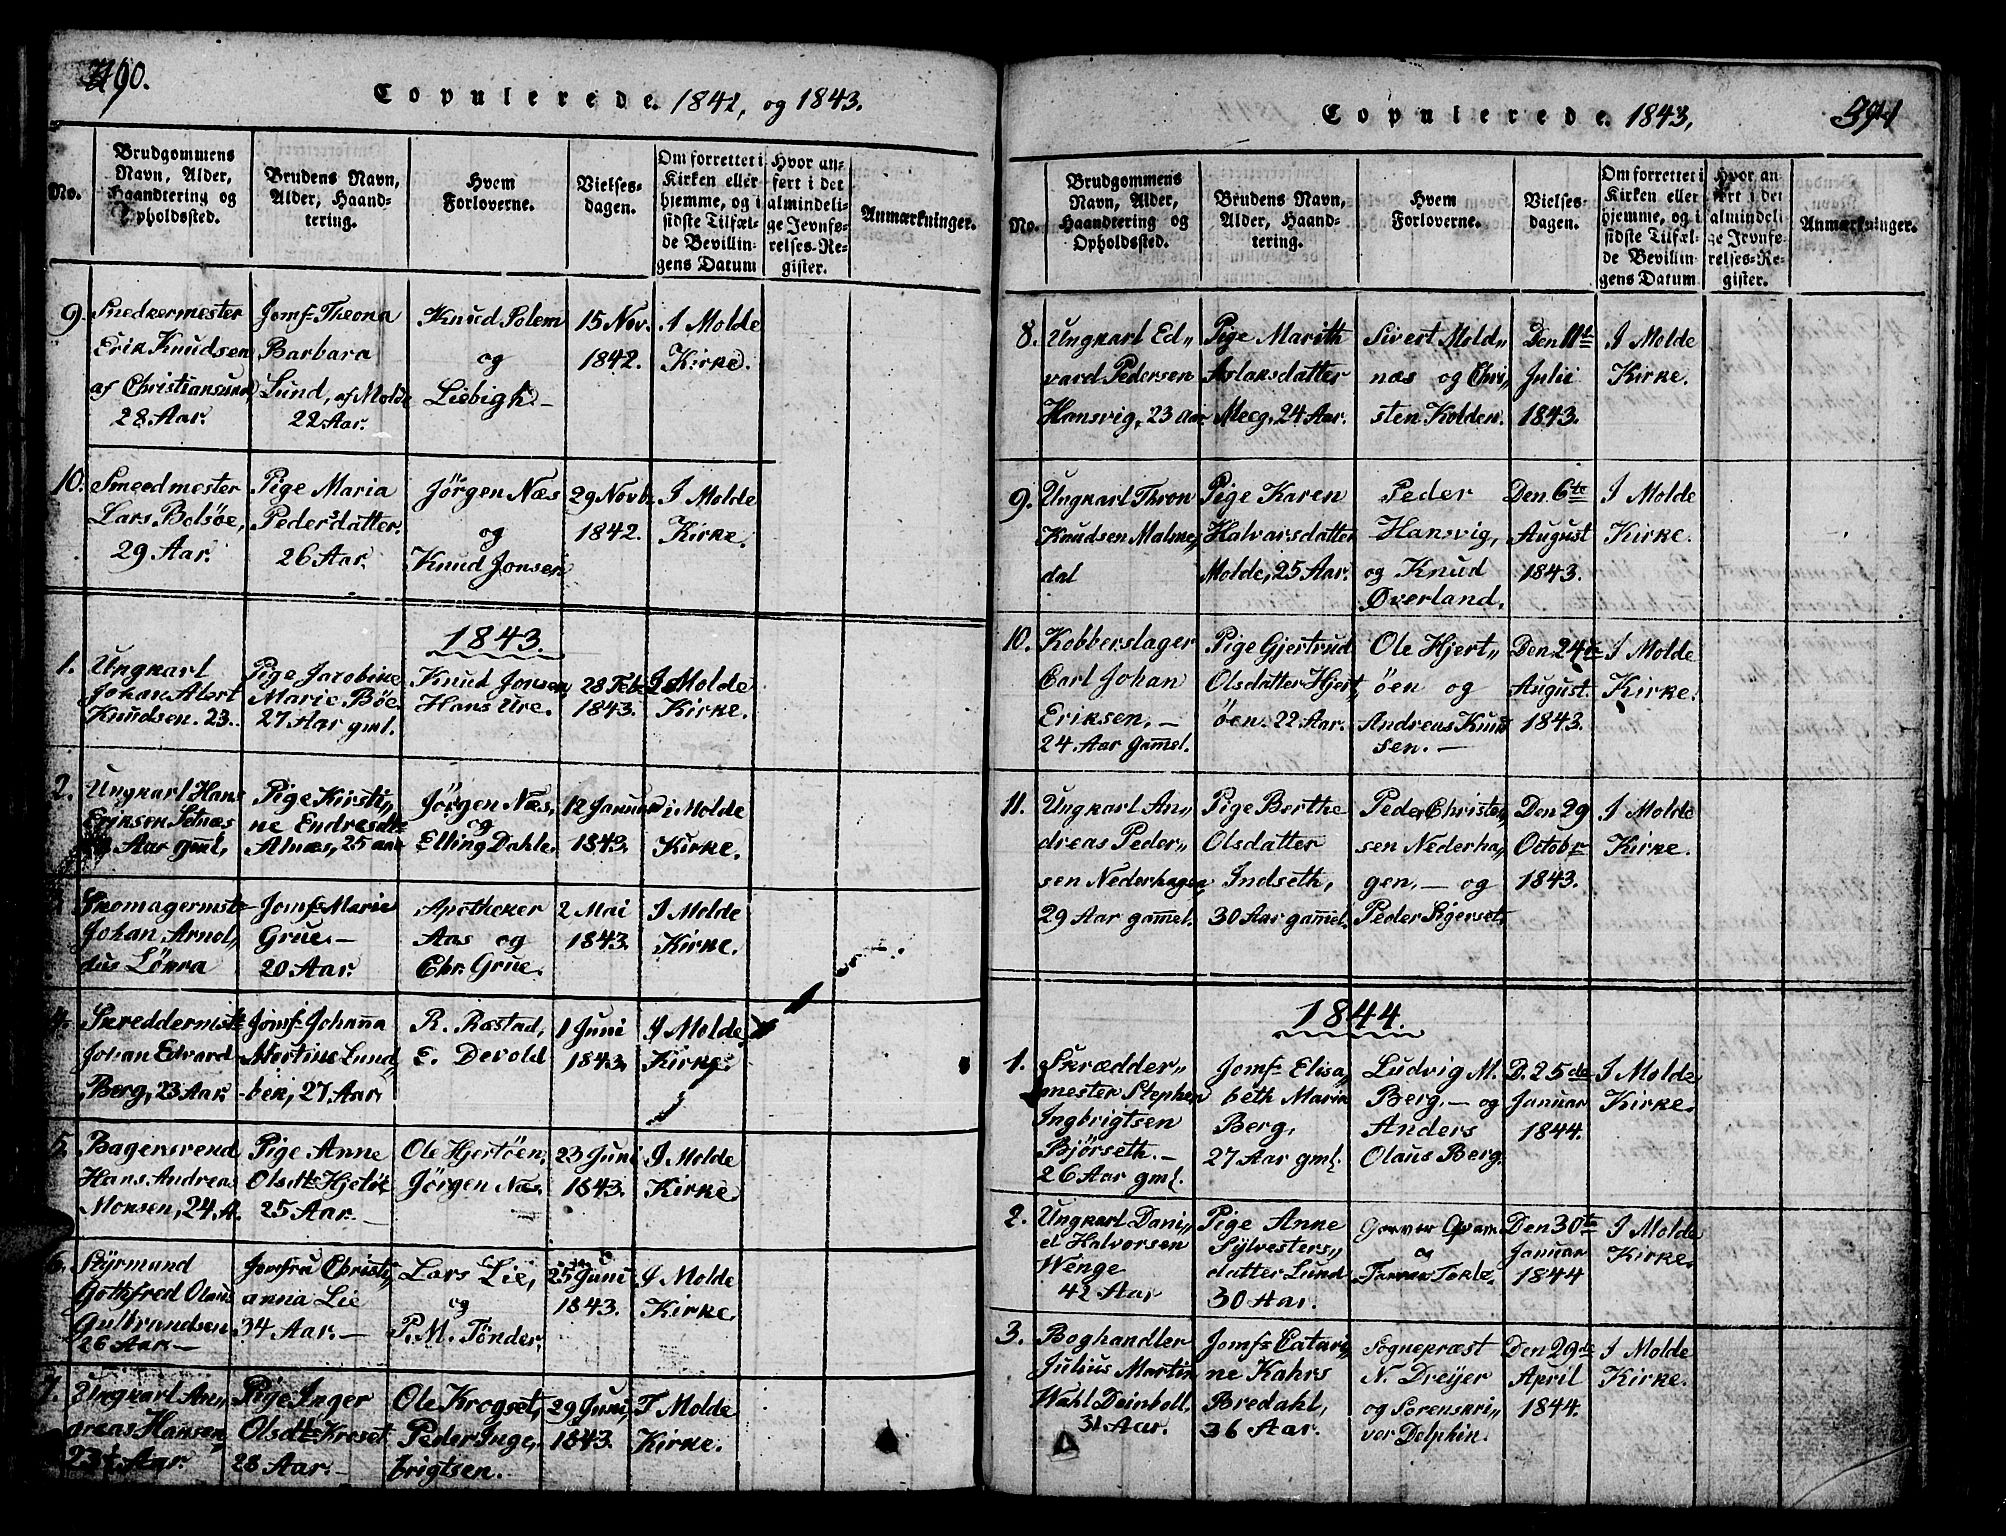 390.
Copulerede. 1842, og 1843.
No.
Brudgommens Navn, Alder, Haandtering og Opholdssted.
Brudens Navn, Alder, Haandtering.
Hvem Forloverne.
Vielsesdagen.
Om forrettet i Kirken eller hjemme, og i sidste Tilfælde Bevillingens Datum
Hvor anført i det almindelige Jevnførelses-Register.
Anmærkninger.
9.
Snedkermester
Erik Knudsen
af Christiansund,
28 Aar.
Jomf: Theona
Barbara
Lund, af Molde
22 Aar.
Knud Solem
og
Liebigh. –
15 Nov.
1842.
I Molde
Kirke.
10.
Smeedmester
Lars Bolsöe,
29 Aar.
Pige Maria
Pedersdatter.
26 Aar.
Jörgen Næs
og
Knud Jonsen
29 Novb.
1842.
I Molde
Kirke.
1843.
1.
Ungkarl
Johan Alert
Knudsen. 23.
Pige Jacobine
Marie Böe
27 Aar gml.
Knud Jonsen
Hans Ure.
28 Feb.
1843.
I Molde
Kirke.
2.
Ungkarl Hans
Eriksen Setnæs
Aar gml,
Pige Kirsti„
ne Endresdtr
Alnæs, 25 aar
Jörgen Næs,
og
Elling Dahle.
12 Januar
1843.
i Molde
Kirke.
3.
Skomagermst
Johan Arnol„
dus Lökra
Jomf: Marie
Grue. –
20 Aar.
Apotheker
Aas og
Chr. Grue.
2 Mai
1843.
I Molde
Kirke.
4.
Skreddermst
Johan Edvard
Berg, 23 Aar.
Jomf: Johanna
Martine Lund
ben, 27 Aar
R. Rastad,
E. Devold
1 Juni
1843.
I Molde
Kirke.
5.
Bagersvend
Hans Andreas
Monsen, 24 A.
Pige Anne
Olsdt: Hjelöe
25 Aar. –
Ole Hjertöen,
Jörgen Næs.
23 Juni
1843.
I Molde
Kirke.
6.
Styrmand
Gothfred Olaus
Gulbrandsen
26 Aar. –
Jomfru Christi„
anna Lie
34 Aar. –
Lars Lie,
og
P. M. Tönder.
25 Juni
1843.
I Molde
Kirke.
7.
Ungkarl An„
dreas Hansen,
23½ Aar.
Pige Inger
Olsdt: Kroset
28 Aar. –
Ole Krogset,
Peder Inge„
brigtsen.
29 Juni,
1843.
I Molde
Kirke.
Copulerede. 1843,
391
No.
Brudgommens Navn, Alder, Haandtering og Opholdssted.
Brudens Navn, Alder, Haandtering.
Hvem Forloverne.
Vielsesdagen.
Om forrettet i Kirken eller hjemme, og i sidste Tilfælde Bevillingens Datum
Hvor anført i det almindelige Jevnførelses-Register.
Anmærkninger.
8.
Ungkarl Ed„
vard Pedersen
Hansvig, 23 aar
Pige Marith
Aslaksdatter
Meeg, 24 Aar.
Sivert Mold„
næs og Chri„
sten Kolden.
Den 11te
Julii
1843.
I Molde
Kirke.
9.
Ungkarl Thron
Knudsen Malme„
dal
Pige Karen
Halvarsdatter
Molde, 25 Aar.
Peder
Hansvig,
og Knud
Øverland.
Den 6te
August
1843.
I Molde
Kirke.
10.
Kobberslager
Carl Johan
Eriksen. –
24 Aar gamel.
Pige Gjertrud
Olsdatter Hjert„
öen. 22 Aar.
Ole Hjert„
öen og
Andreas Knud
sen. –
Den 24de
August.
1843.
I Molde
Kirke.
11.
Ungkarl An„
dreas Peder„
sen Nederhagen
29 Aar gamel.
Pige Berthe
Olsdatter
Indseth,
30 Aar gamel.
Peder Christen„
sen Nederha„
gen, – og
Peder Sigerset.
Den 29
Octobr
1843.
I Molde
Kirke.
1844.
1.
Skrædder„
mester Stephen
Ingbrigtsen
Björseth. –
26 Aar gml.
Jomf: Elisa„
beth Marie
Berg,
27 Aar gml.
Ludvig M.
Berg, – og
Anders
Olaus Berg.
D. 25de
Januar
1844.
I Molde
Kirke.
2.
Ungkarl Dani„
el Halvorsen
Wenge
42 Aar
Pige Anne
Sylvesters„
datter Lund
30 Aar.
Garver Qvam
og
Farver Tokle.
Den 30te
Januar
1844
I Molde
Kirke.
3.
Boghandler
Julius Martin
Wahl Deinboll,
31 Aar.
Jomf: Catari„
ne Kahrs
Bredahl,
36 Aar.
Sognepræst
N. Dreyer
og Sorenskri„
ver Delphin.
Den 29de
April
1844.
I Molde
Kirke.